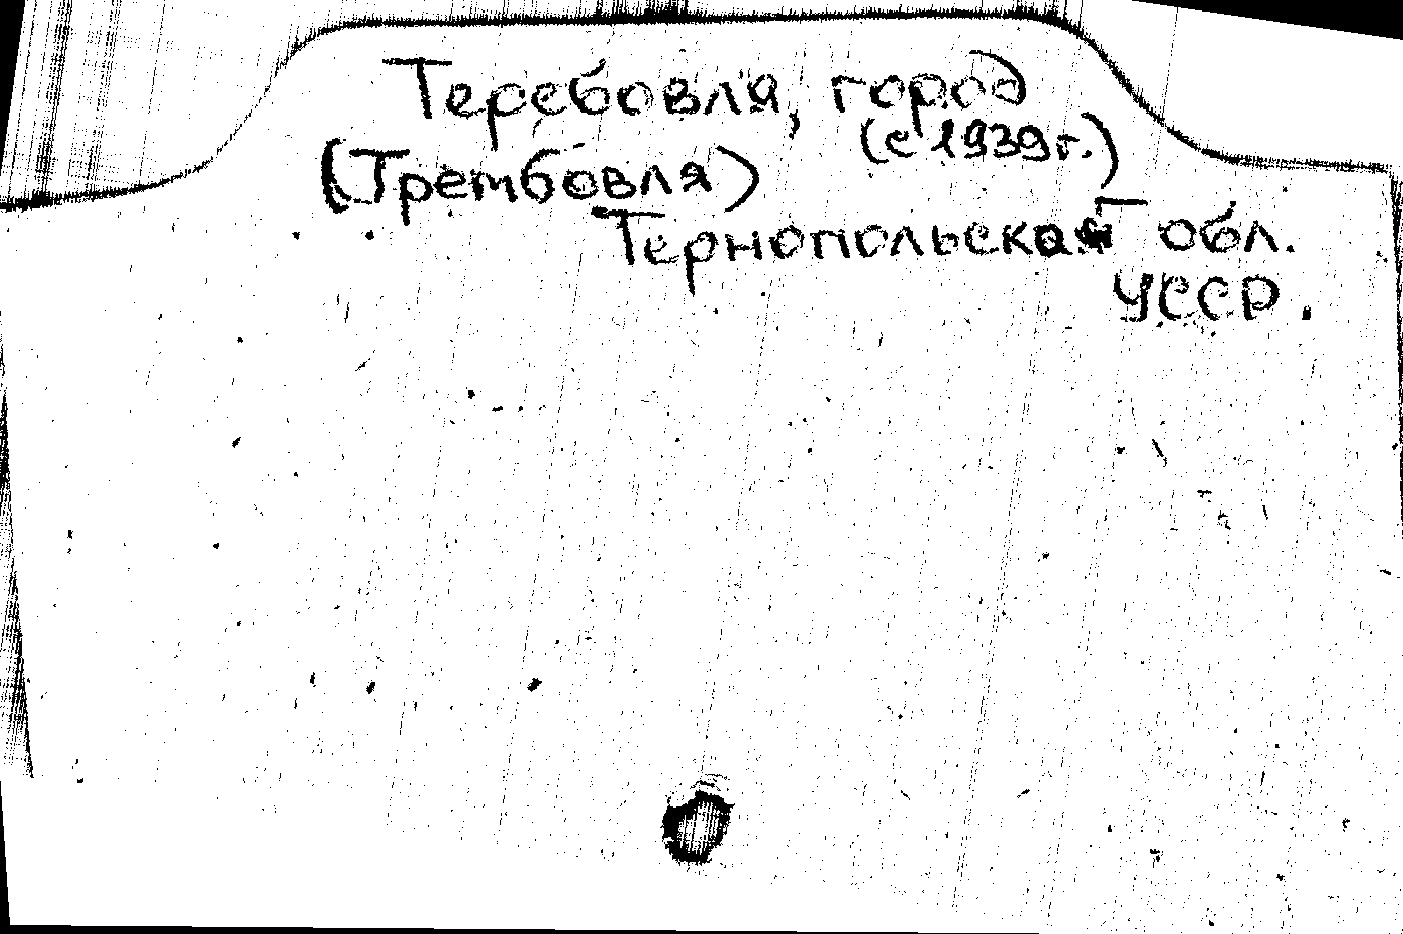 Теребовля, город
(с 1939 г.)
(Трембовля)
Тернопольская обл.
УССР.